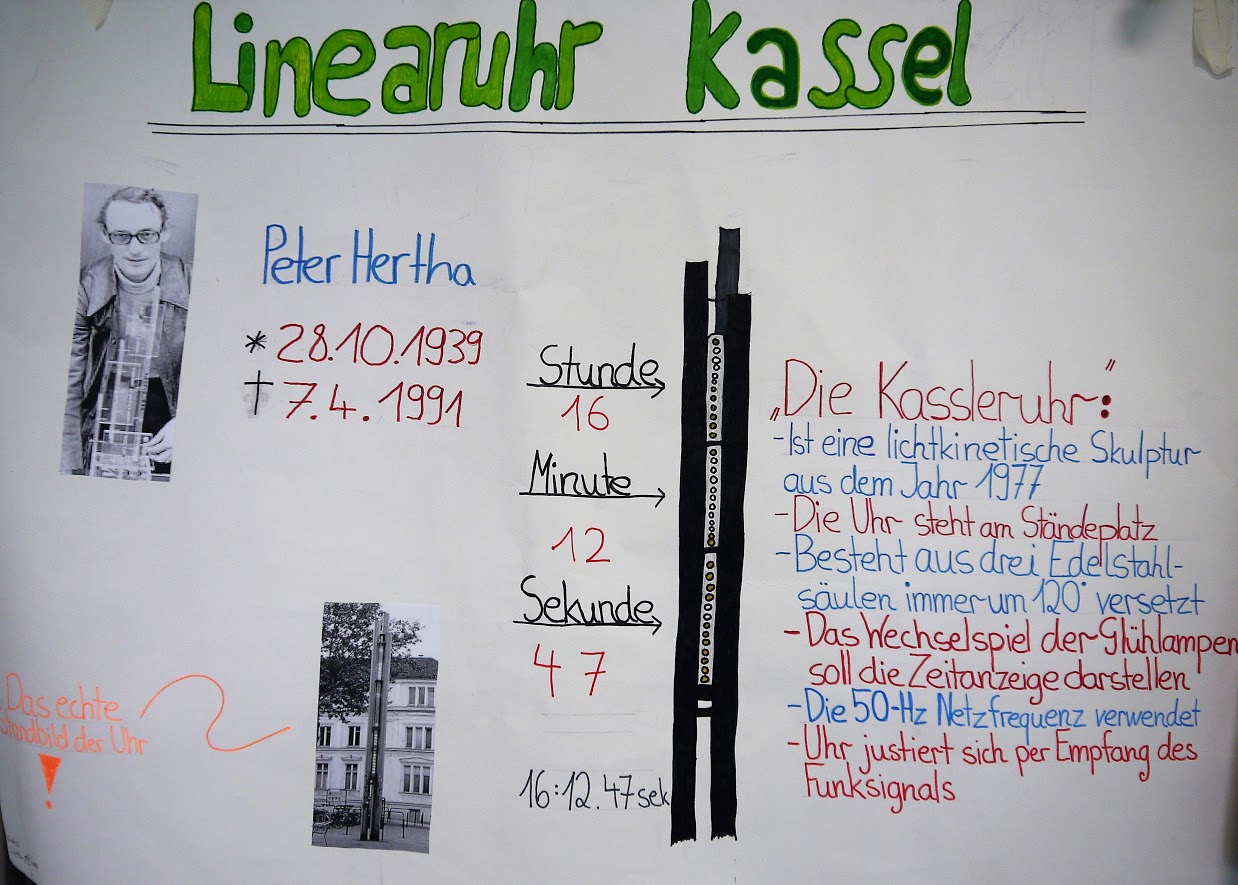 Linearuhr Kassel
Peter Hertha
* 28.10.1939
† 7.4.1991
Stunde
16
Minute
12
Sekunde
47
16:12.47sek
„Die Kassleruhr:"
-Ist eine lichtkinetische Skulptur
aus dem Jahr 1977
-Die Uhr steht am Ständeplatz
-Besteht aus drei Edelstahl-
säulen immer um 120° versetzt
-Das Wechselspiel der Glühlampen
soll die Zeitanzeige darstellen
-Die 50-Hz Netzfrequenz verwendet
-Uhr justiert sich per Empfang des
Funksignals
Das echte
Standbild der Uhr
!